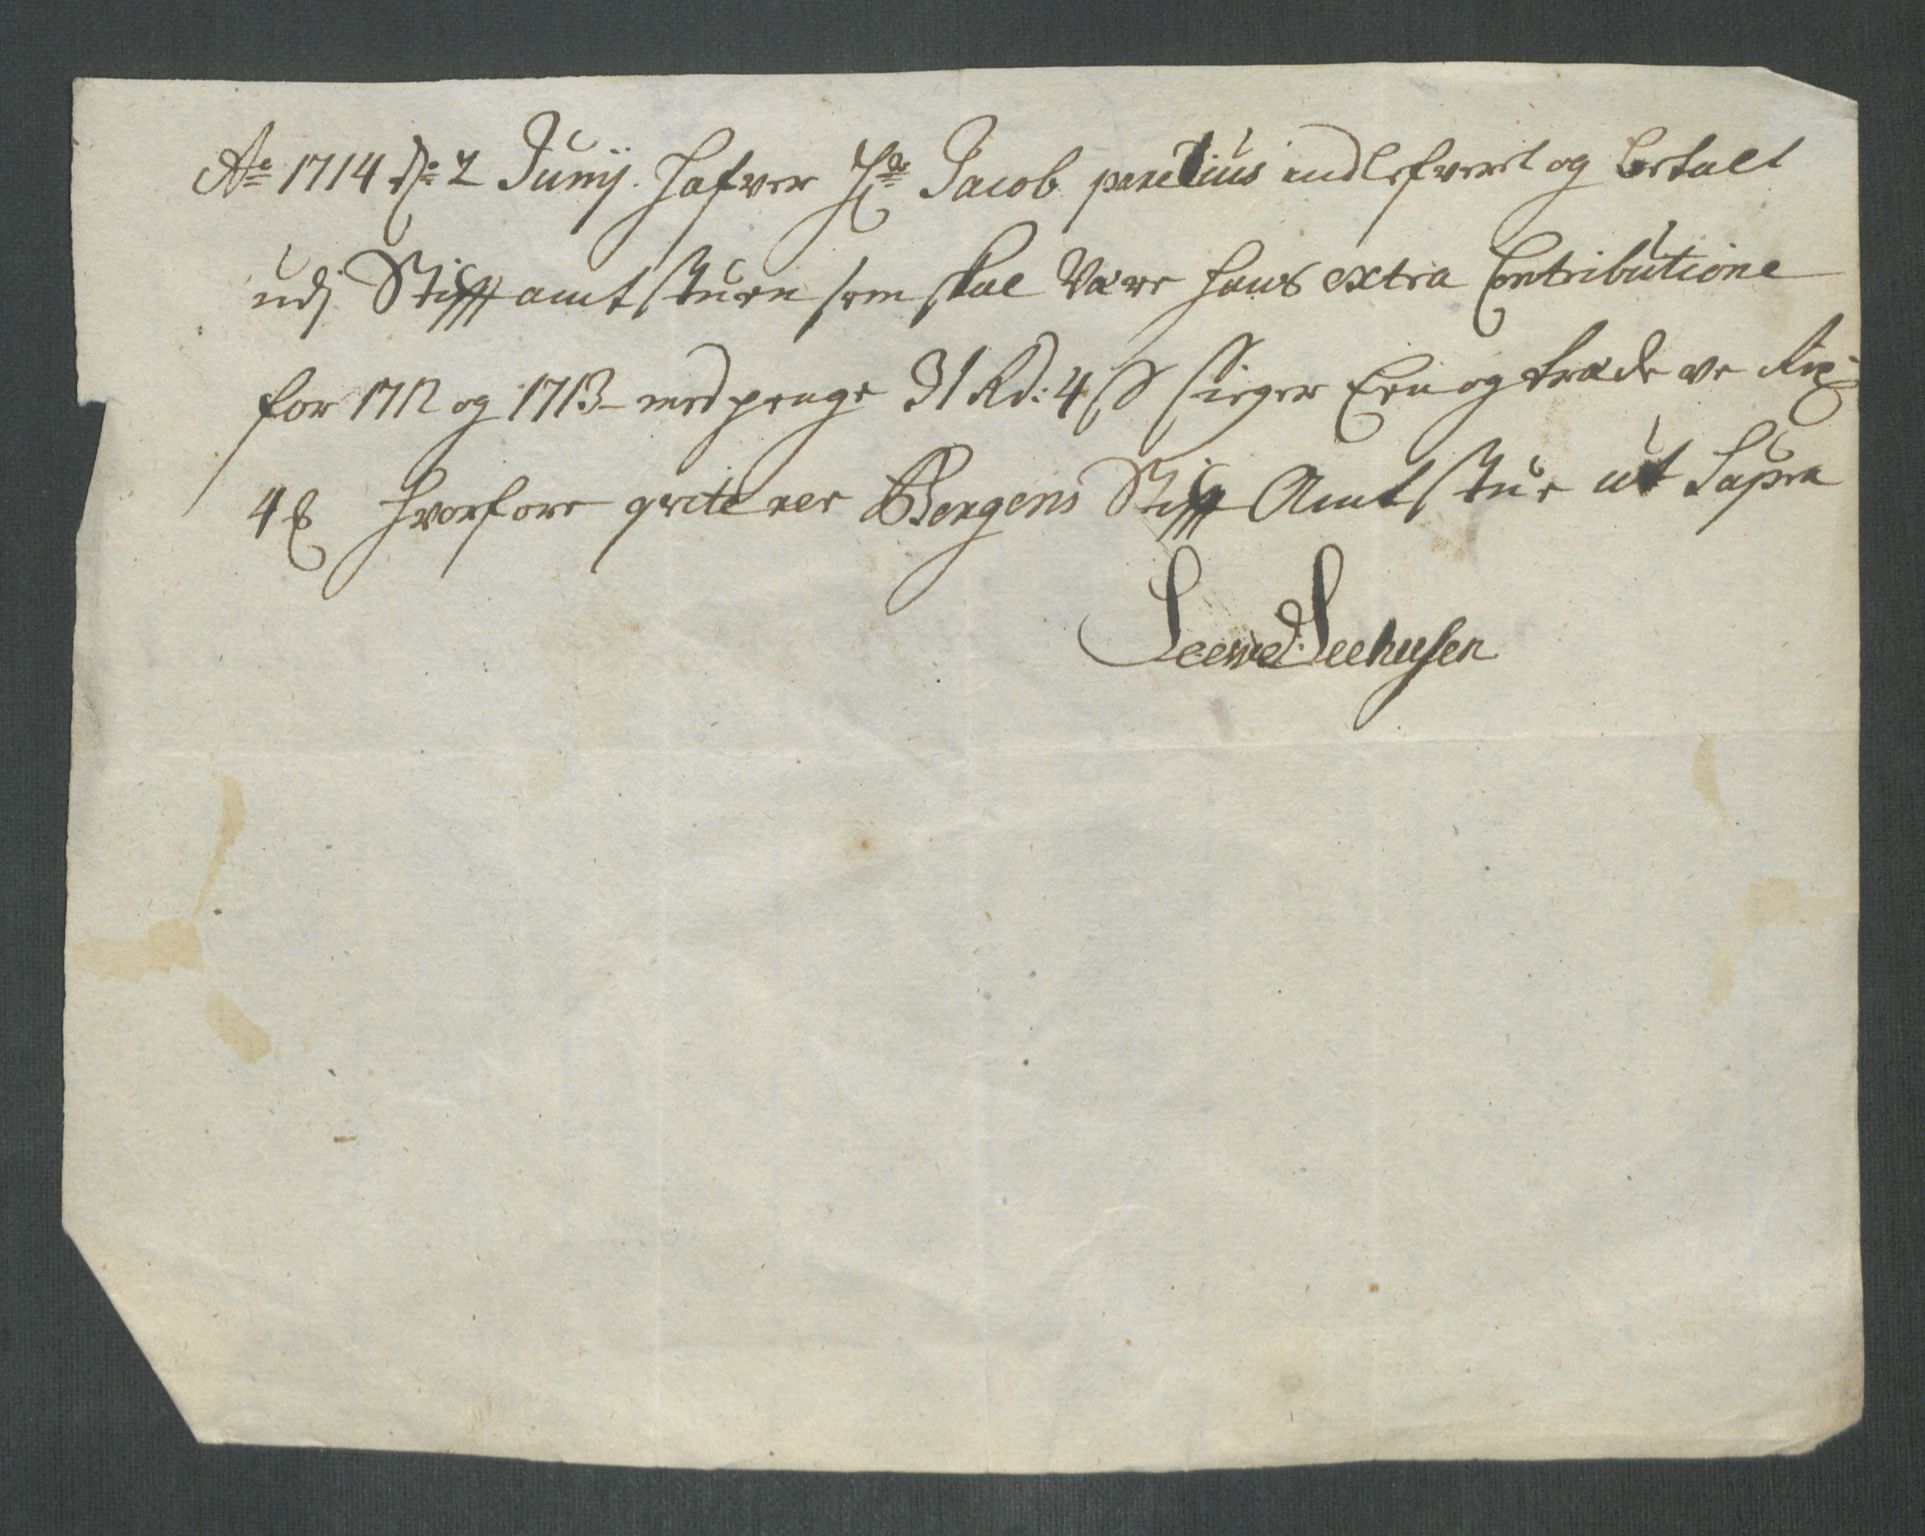 Ao 1714 d: 2 Junij. hafver Hr Jacob paulius indlefveret og betalt
udj Stifft amtstuen som skal være hans extra Contributione
for 1712 og 1713 med penge 31 Rd: 4 ß siger Een og tradeve Rix:
4 ß hvorfore qviterer Bergens Stifft Amtstue ut Supra
Seehusen